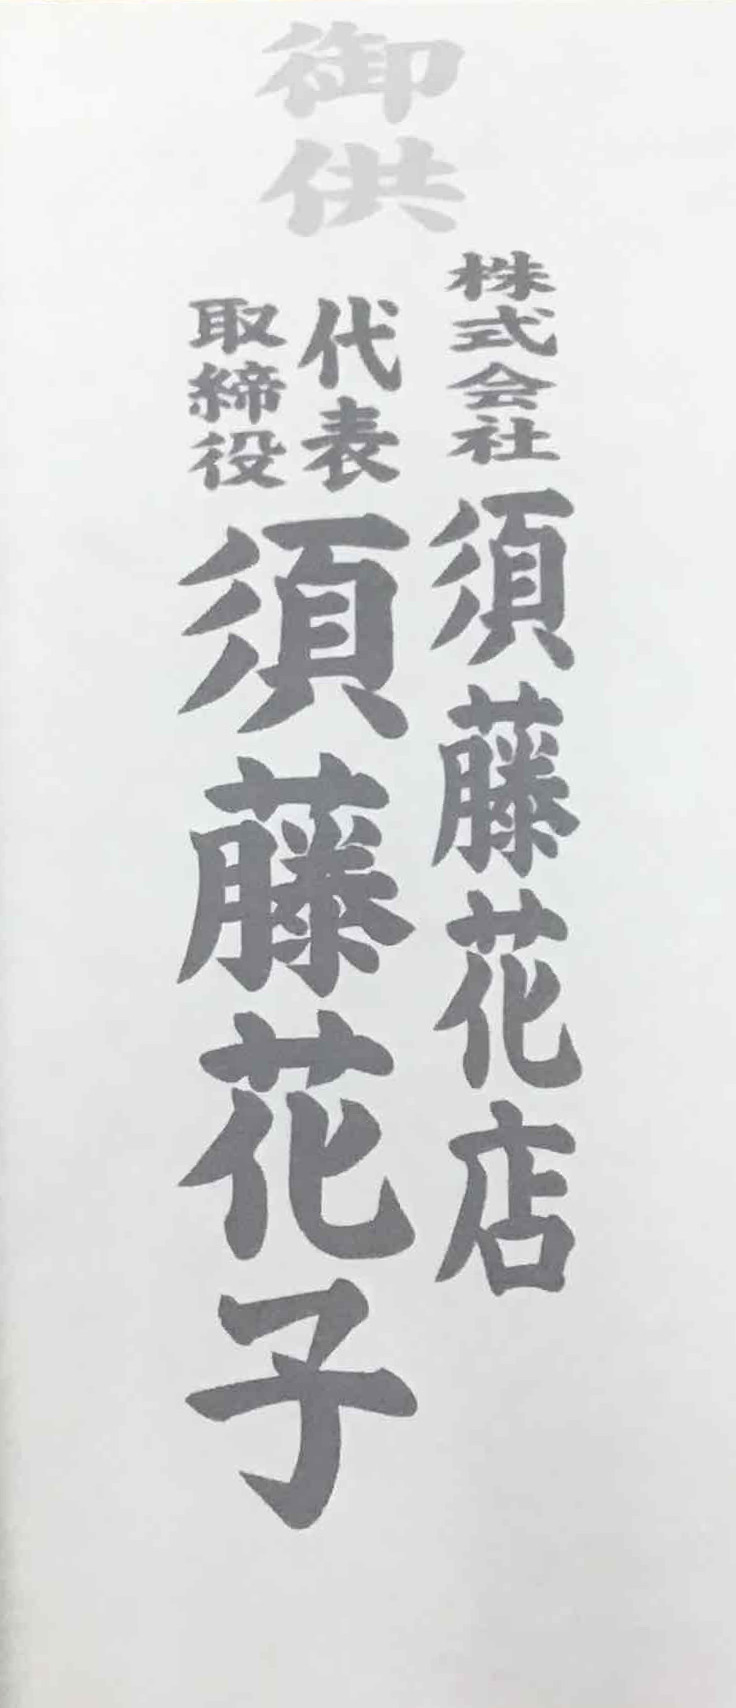 御供
株式会社須藤花店
代表取締役須藤花子